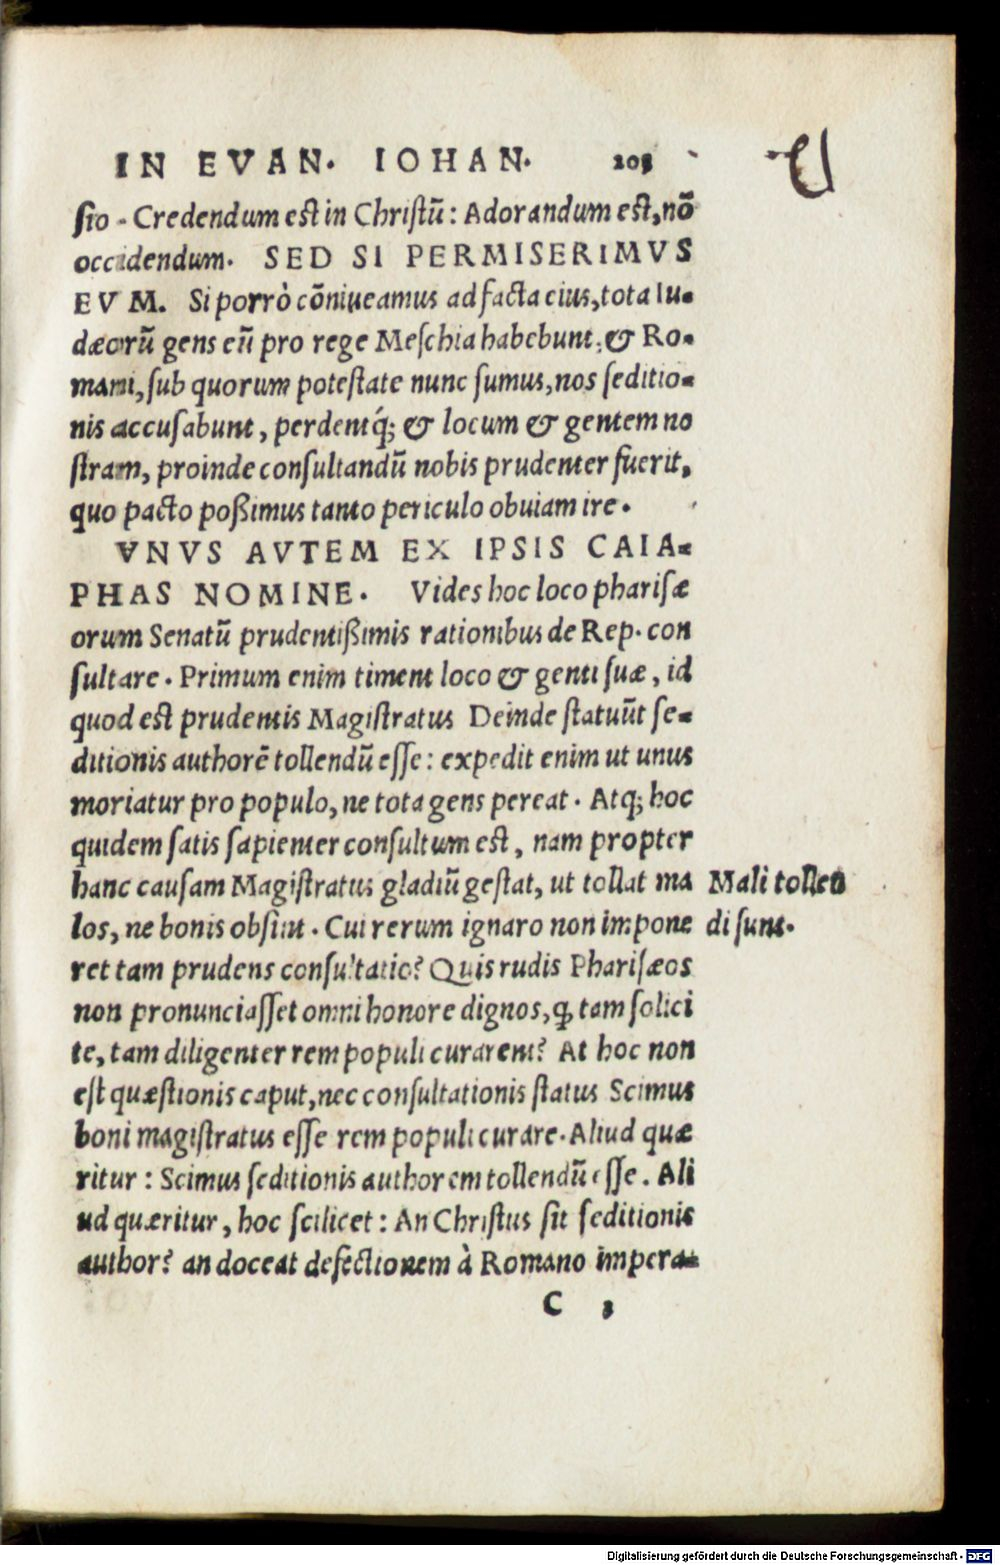 IN EVAN. IOHAN. 203
sio. Credendum est in Christū: Adorandum est, nō
occidendum. SED SI PERMISERIMVS
EVM. Si porrò cōniueamus ad facta eius, tota Iu-
dæorū gens eū pro rege Meschia habebunt: & Ro-
mani, sub quorum potestate nunc sumus, nos seditio-
nis accusabunt, perdentq́; & locum & gentem no
stram, proinde consultandū nobis prudenter fuerit,
quo pacto poßimus tanto periculo obuiam ire.
VNVS AVTEM EX IPSIS CAIA-
PHAS NOMINE. Vides hoc loco pharisæ
orum Senatū prudentißimis rationibus de Rep. con
sultare. Primum enim timent loco & genti suæ, id
quod est prudentis Magistratus Deinde statuūt se-
ditionis authorē tollendū esse: expedit enim ut unus
moriatur pro populo, ne tota gens pereat. Atq; hoc
quidem satis sapienter consultum est, nam propter
hanc causam Magistratus gladiū gestat, ut tollat ma
los, ne bonis obsint. Cui rerum ignaro non impone
ret tam prudens consultatio? Quis rudis Pharisæos
non pronunciasset omni honore dignos, ꝙ tam solici
te, tam diligenter rem populi curarent? At hoc non
est quæstionis caput, nec consultationis status Scimus
boni magistratus esse rem populi curare. Aliud quæ
ritur: Scimus seditionis authorem tollendū esse. Ali
ud quæritur, hoc scilicet: An Christus sit seditionis
author? an doceat defectionem à Romano impera-
C 3
Mali tollen
di sunt.
Digitalisierung gefördert durch die Deutsche Forschungsgemeinschaft - DFG